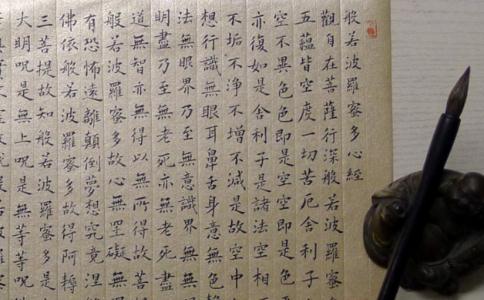 般若波羅蜜多心經
觀自在菩薩行深般若波羅蜜
五蘊皆空度一切苦厄舍利子
空不異色色即是空空即是色
亦復如是舍利子是諸法空相
不垢不淨不增不減是故空中
想行識無眼耳鼻舌身意無色
法無眼界乃至無意識界無無
明盡乃至無老死亦無老死盡
道無智亦無得以無所得故菩
般若波羅蜜多故心無罣礙無
有恐怖遠離顛倒夢想究竟涅
佛依般若波羅蜜多故得阿耨
三菩提故知般若波羅蜜多是
大明咒是無上咒是無等等咒